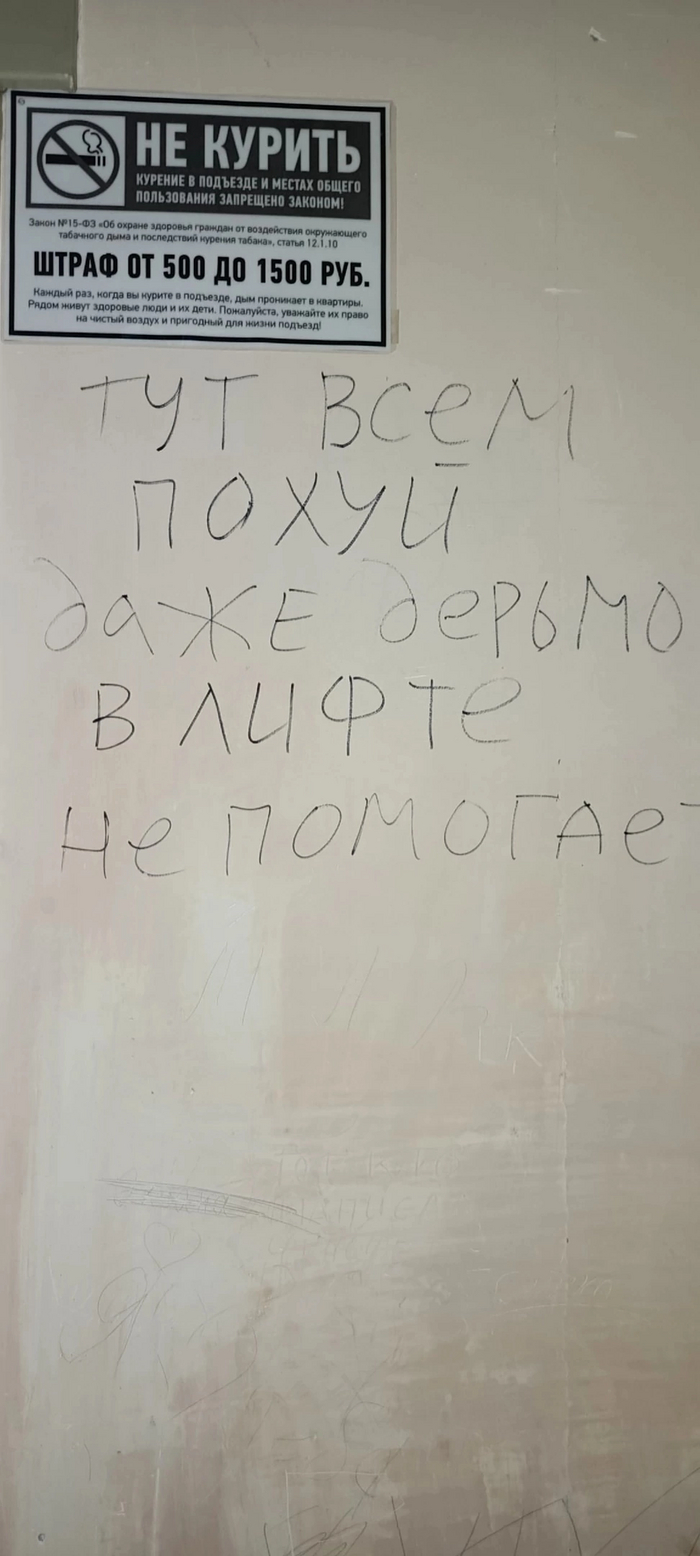 НЕ КУРИТЬ
КУРЕНИЕ В ПОДЪЕЗДЕ И МЕСТАХ ОБЩЕГО
ПОЛЬЗОВАНИЯ ЗАПРЕЩЕНО ЗАКОНОМ!
Закон №15-ФЗ «Об охране здоровья граждан от воздействия окружающего
табачного дыма и последствий курения табака», статья 12.1.10
ШТРАФ ОТ 500 ДО 1500 РУБ.
Каждый раз, когда вы курите в подъезде, дым проникает в квартиры.
Рядом живут здоровые люди и их дети. Пожалуйста, уважайте их право
на чистый воздух и пригодный для жизни подъезд!
ТУТ ВСЕМ
ПОХУЙ
даЖЕ дерьМО
В ЛИФТе
Не ПОМОГАеТ